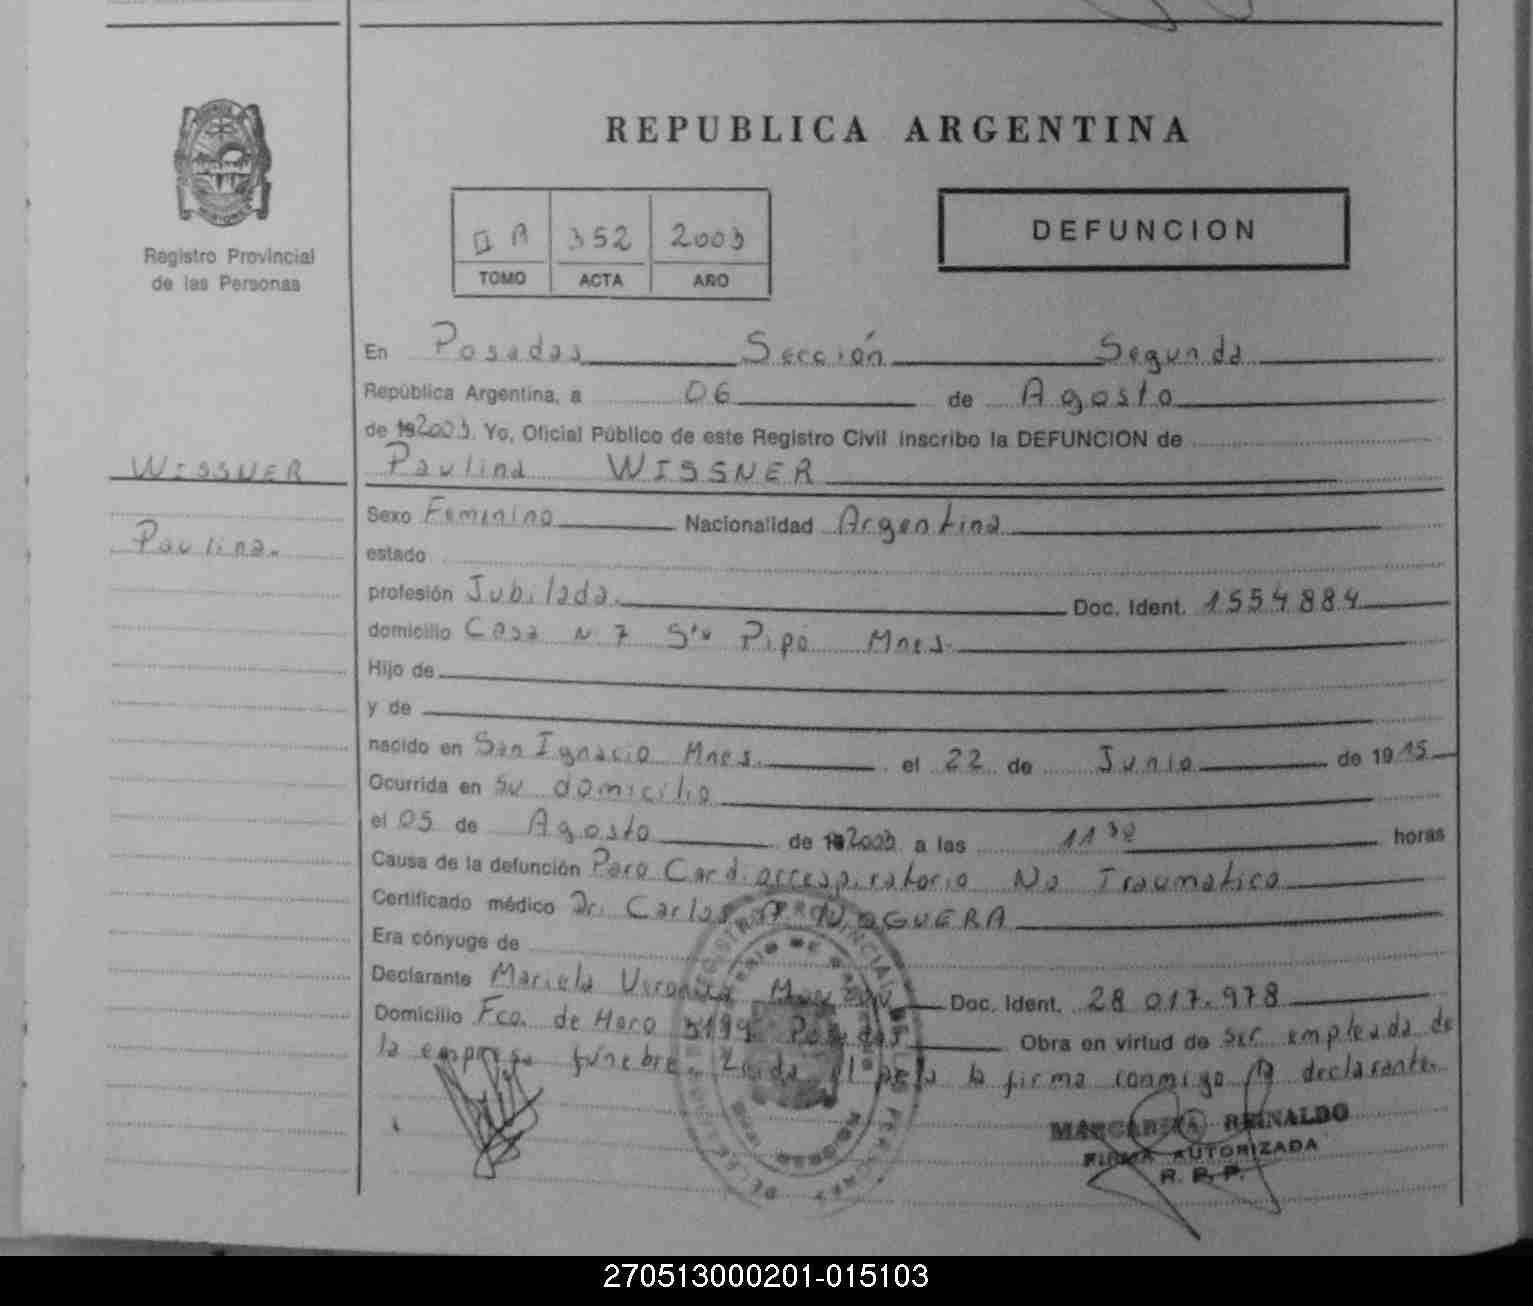 REPUBLICA ARGENTINA
Registro Provincial
de las Personas
352 2003
TOMO ACTA AÑO
DEFUNCION
En Posadas Sección Segunda
República Argentina, a 06 de Agosto
de 2003. Yo, Oficial Público de este Registro Civil inscribo la DEFUNCION de
WISSNER
Paulina WISSNER
Sexo Femenino Nacionalidad Argentina
Paulina.
estado
profesión Jubilada. Doc. Ident. 1554884
domicilio Casa N 7 Pipó Mnes.
Hijo de
y de
nacido en San Ignacio Mnes. el 22 de Junio de 1915
Ocurrida en Su domicilio
el 05 de Agosto de 2003 a las 11 30 horas
Causa de la defunción Paro Cardiorrespiratorio No Traumatico
Certificado médico Dr. Carlos NOGUERA
Era cónyuge de
Declarante Mariela Veronica Doc. Ident. 28 017.978
Domicilio Fco. de Haro Posadas Obra en virtud de ser empleada de
la empresa fúnebre. Leida el acta la firma conmigo la declarante.
REINALDO
FIRMA AUTORIZADA
R. P. P.
270513000201-015103